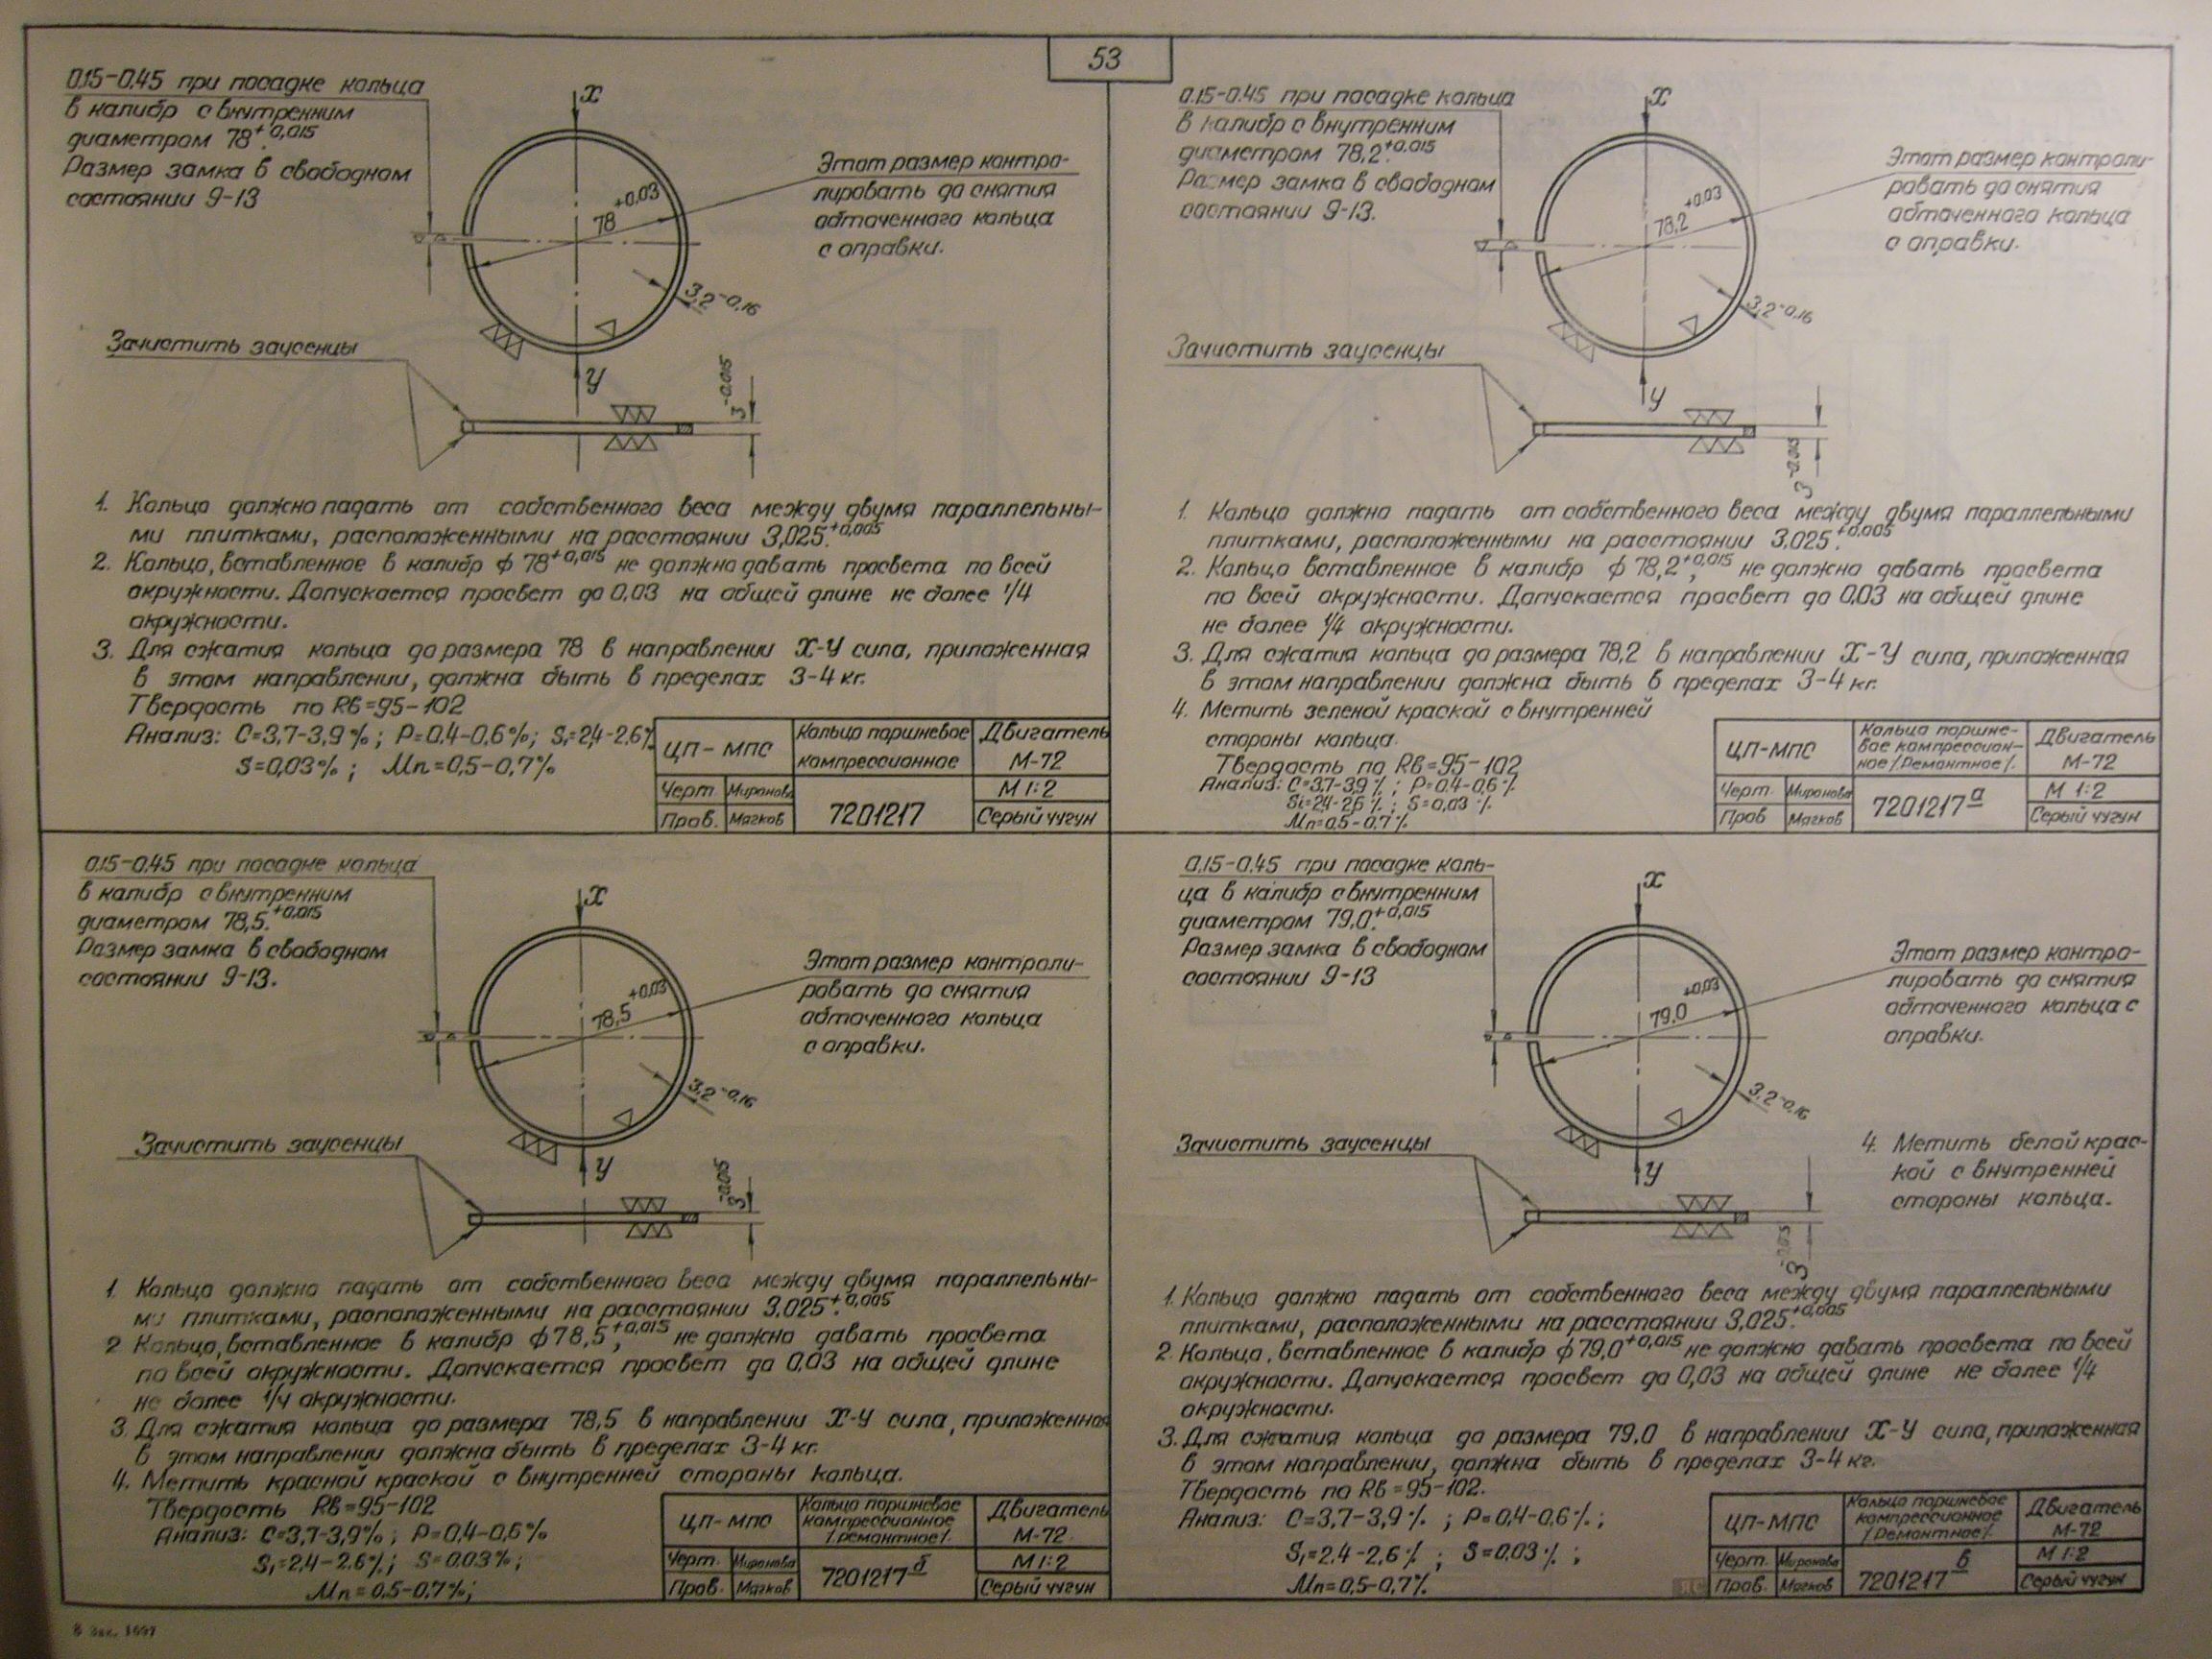 53
0.15-0.45 при посадке кольца
в калибр с внутренним
диаметром 78+0,015.
Размер замка в свободном
состоянии 9-13
X
Этот размер контро-
лировать до снятия
обточенного кольца
с оправки.
+0,03
78
3,2-0,16
Зачистить заусенцы
У
3-0,015
1. Кольцо должно падать от собственного веса между двумя параллельны-
ми плитками, расположенными на расстоянии 3,025+0,005.
2. Кольцо, вставленное в калибр ф 78+0,015 не должно давать просвета по всей
окружности. Допускается просвет до 0,03 на общей длине не более 1/4
окружности.
3. Для сжатия кольца до размера 78 в направлении X-У сила, приложенная
в этом направлении, должна быть в пределах 3-4 кг.
Твердость по Rb=95-102
Анализ: C=3,7-3,9%; P=0,4-0,6%; Si=2,4-2,6%
S=0,03%; Mn=0,5-0,7%
ЦП-МПС
Кольцо поршневое
компрессионное
Двигатель
М-72
Черт. Миронова
Пров. Мягков
7201217
М 1:2
Серый чугун
0.15-0.45 при посадке кольца
в калибр с внутренним
диаметром 78,2+0,015.
Размер замка в свободном
состоянии 9-13.
X
Этот размер контроли-
ровать до снятия
обточенного кольца
с оправки.
+0,03
78,2
3,2-0,16
Зачистить заусенцы
У
3-0,015
1. Кольцо должно падать от собственного веса между двумя параллельными
плитками, расположенными на расстоянии 3,025+0,005.
2. Кольцо вставленное в калибр ф 78,2+0,015, не должно давать просвета
по всей окружности. Допускается просвет до 0,03 на общей длине
не более 1/4 окружности.
3. Для сжатия кольца до размера 78,2 в направлении X-У сила, приложенная
в этом направлении должна быть в пределах 3-4 кг.
4. Метить зеленой краской с внутренней
стороны кольца.
Твердость по Rb=95-102
Анализ: C=3,7-3,9%; P=0,4-0,6%
Si=2,4-2,6%; S=0,03%
Mn=0,5-0,7%
ЦП-МПС
Кольцо поршне-
вое компрессион-
ное /Ремонтное/.
Двигатель
М-72
Черт. Миронова
Пров Мягков
7201217а
М 1:2
Серый чугун
0.15-0.45 при посадке кольца
в калибр с внутренним
диаметром 78,5+0,015.
Размер замка в свободном
состоянии 9-13.
X
Этот размер контроли-
ровать до снятия
обточенного кольца
с оправки.
+0,03
78,5
3,2-0,16
Зачистить заусенцы
У
3-0,015
1. Кольцо должно падать от собственного веса между двумя параллельны-
ми плитками, расположенными на расстоянии 3,025+0,005.
2 Кольцо, вставленное в калибр ф78,5+0,015, не должно давать просвета
по всей окружности. Допускается просвет до 0,03 на общей длине
не более 1/4 окружности.
3. Для сжатия кольца до размера 78,5 в направлении X-У сила, приложенная
в этом направлении должна быть в пределах 3-4 кг.
4. Метить красной краской с внутренней стороны кольца.
Твердость Rb=95-102
Анализ: C=3,7-3,9%; P=0,4-0,6%
Si=2,4-2,6%; S=0.03%;
Mn=0,5-0,7%;
ЦП-МПС
Кольцо поршневое
компрессионное
/Ремонтное/.
Двигатель
М-72.
Черт. Миронова
Пров. Мягков
7201217б
М 1:2
Серый чугун
0,15-0,45 при посадке коль-
ца в калибр с внутренним
диаметром 79,0+0,015.
Размер замка в свободном
состоянии 9-13
X
Этот размер контро-
лировать до снятия
обточенного кольца с
оправки.
+0,03
79,0
3,2-0,16
Зачистить заусенцы
У
4. Метить белой крас-
кой с внутренней
стороны кольца.
1. Кольцо должно падать от собственного веса между двумя параллельными
плитками, расположенными на расстоянии 3,025+0,005.
2. Кольцо, вставленное в калибр ф79,0+0,015 не должно давать просвета по всей
окружности. Допускается просвет до 0,03 на общей длине не более 1/4
окружности.
3. Для сжатия кольца до размера 79,0 в направлении X-У сила, приложенная
в этом направлении, должна быть в пределах 3-4 кг.
Твердость по Rb=95-102.
Анализ: C=3,7-3,9%; P=0,4-0,6%;
Si=2,4-2,6%; S=0,03%;
Mn=0,5-0,7%
ЦП-МПС
Кольцо поршневое
компрессионное
/Ремонтное/.
Двигатель
М-72
Черт. Миронова
Пров. Мягков
7201217в
М 1:2
Серый чугун
8 Зак. 1697